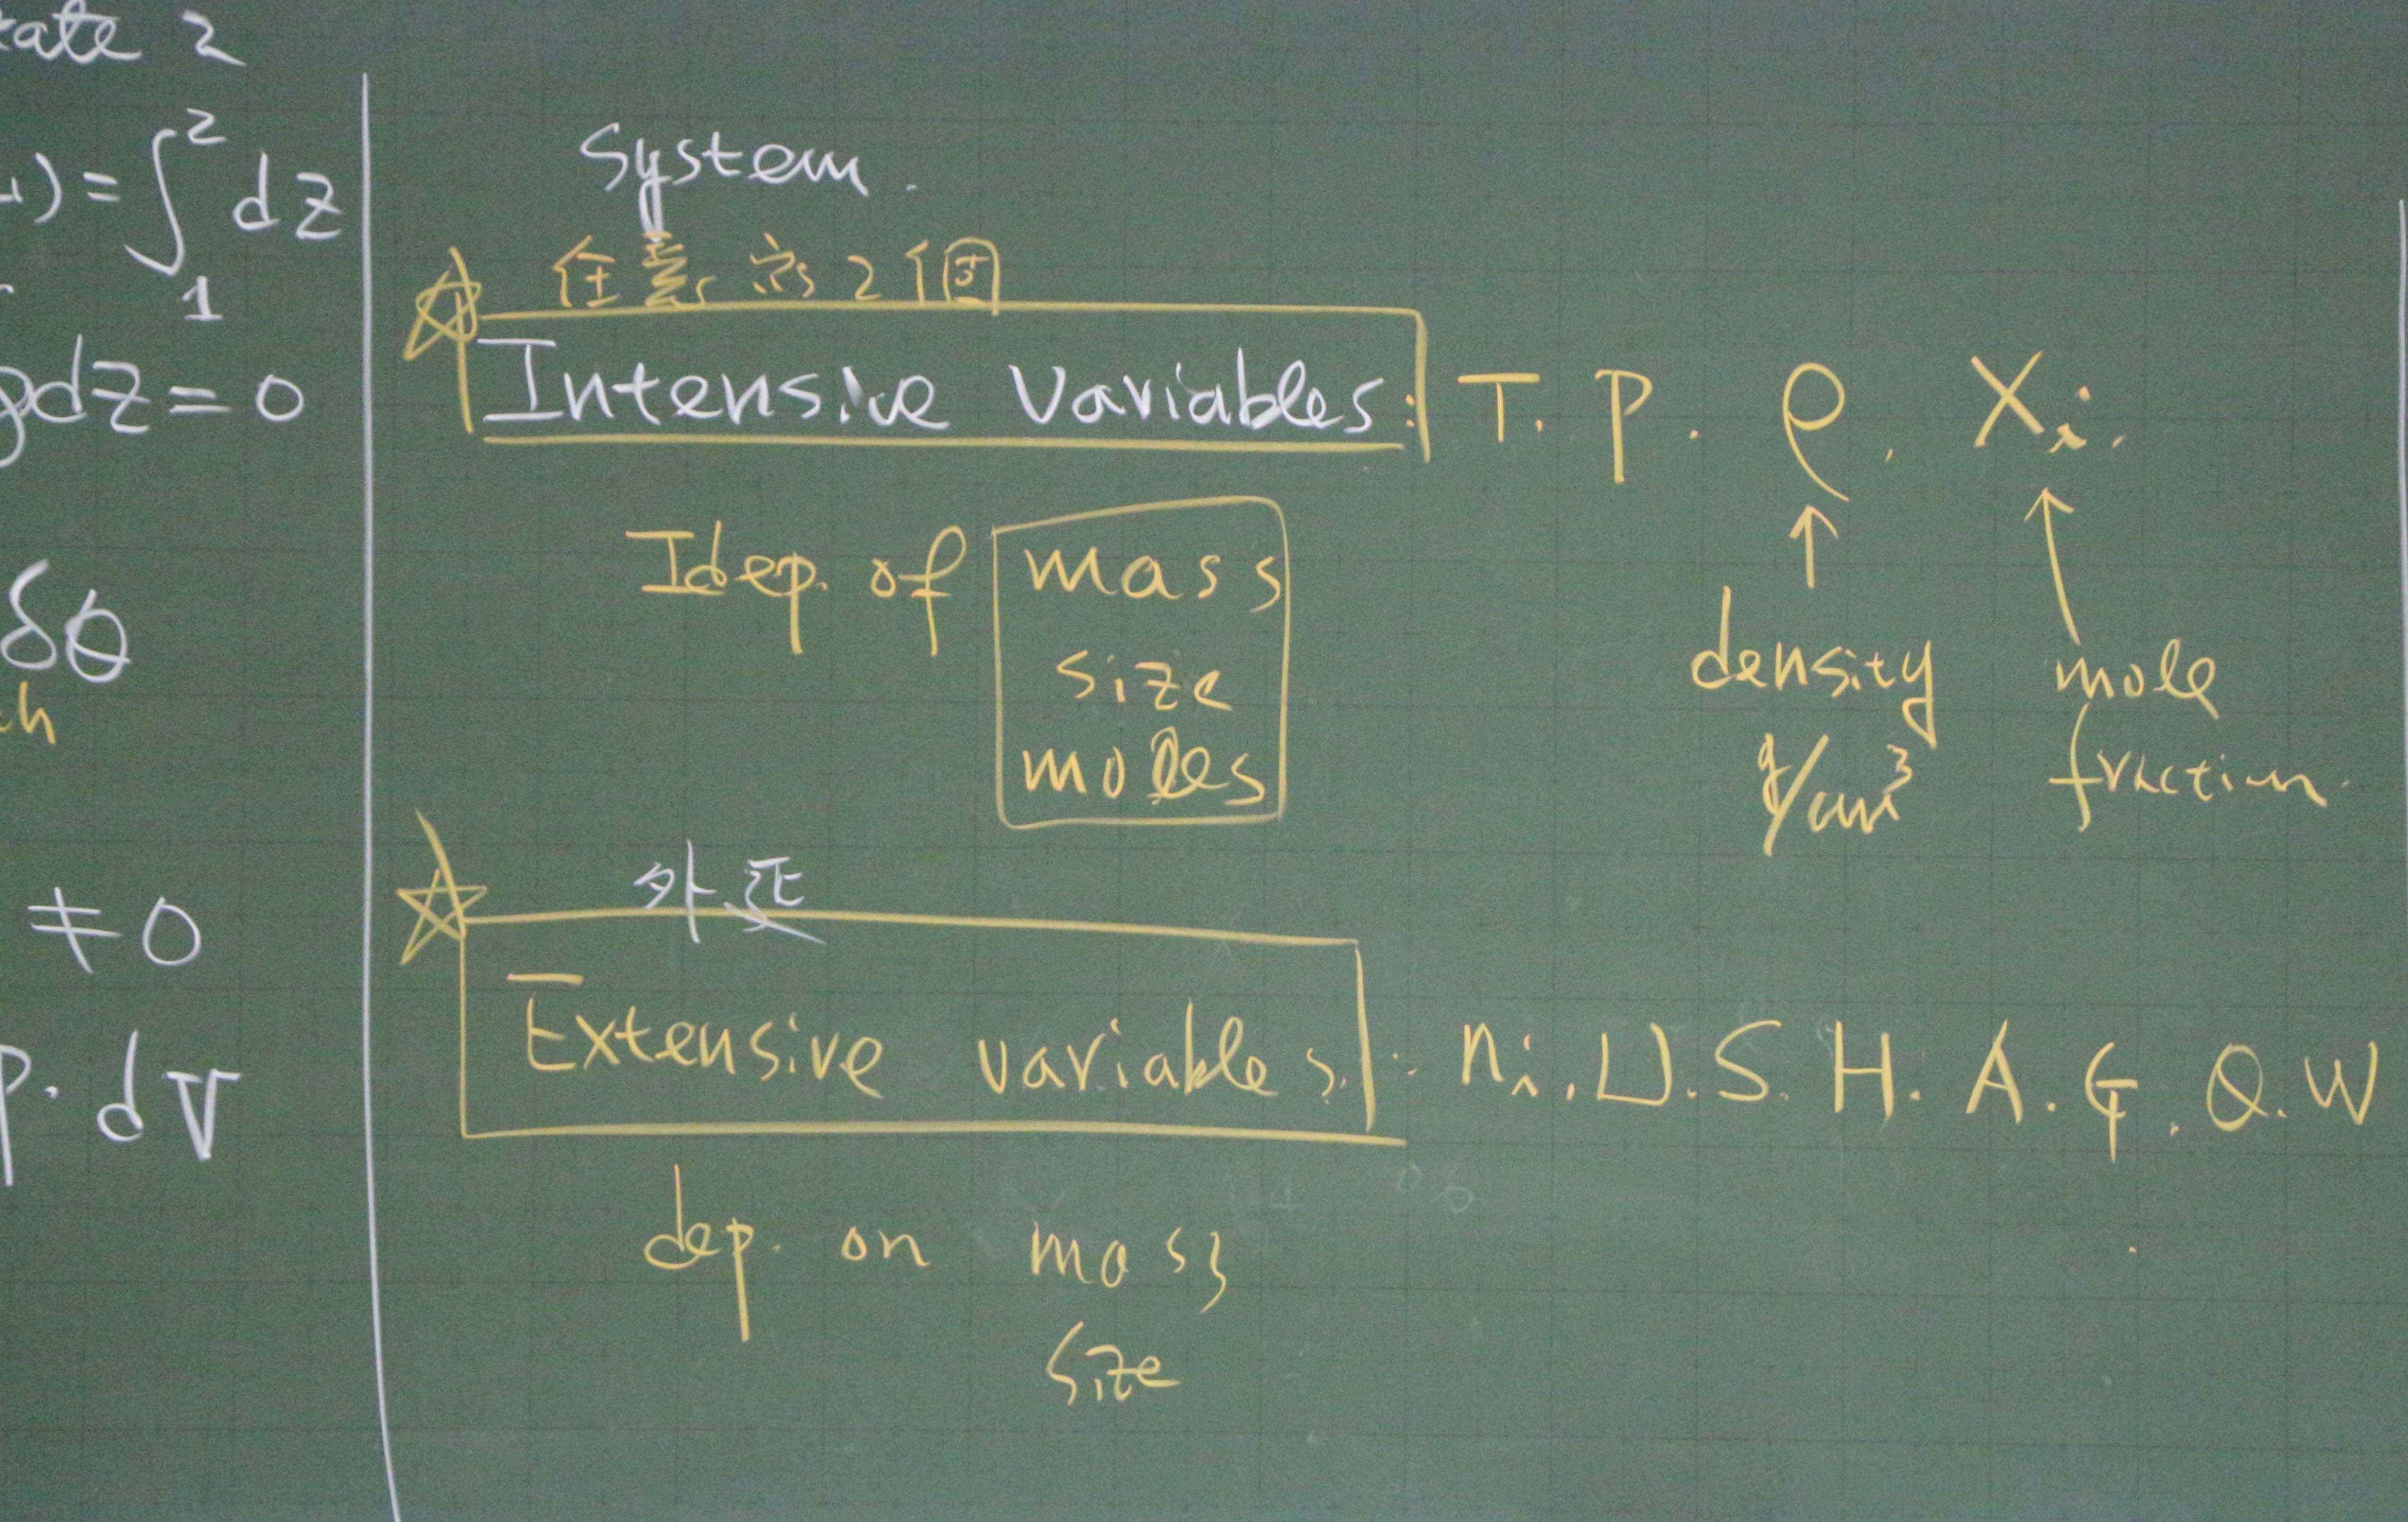 2
) = ∫₁² dz
gdz = 0
δQ
≠ 0
P. dV
System.
任意 2 個
Intensive Variables: T. P. ρ. Xi.
Idep. of mass
size
moles
density
g/cm³
mole
fraction.
外延
Extensive variables. : ni. U. S. H. A. G. Q. W
dep. on mass
size